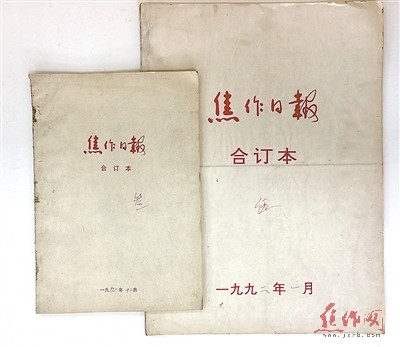 焦作日報
合订本
焦作日報
合订本
伍
一九九二年一月
焦作网
www.jzrb.com